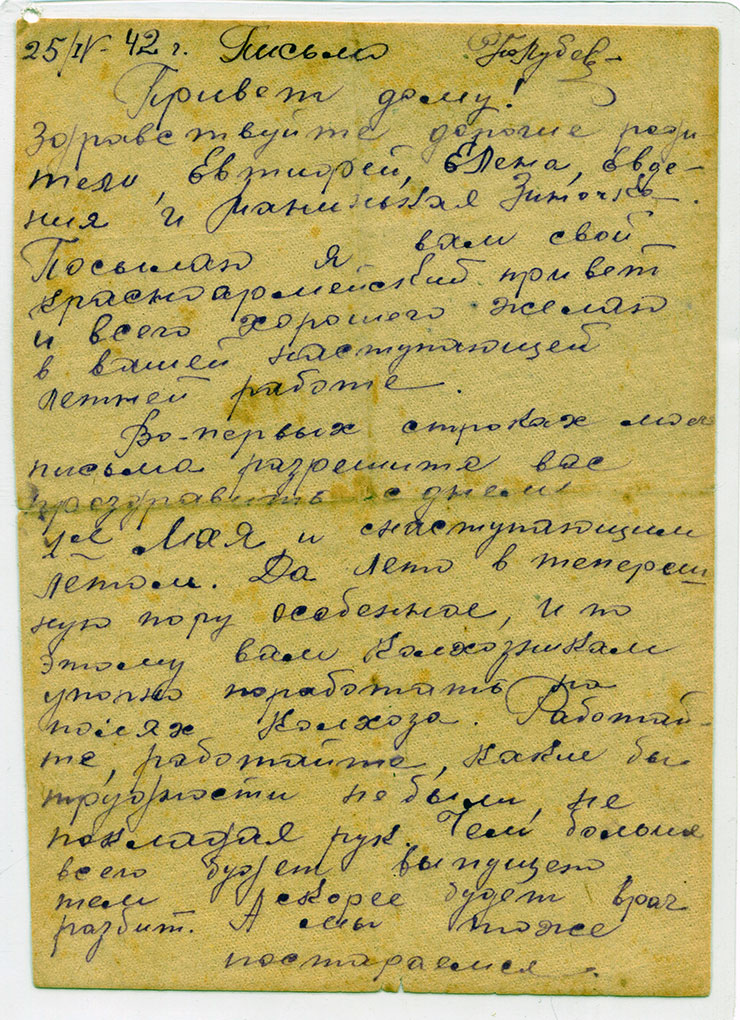 25/IV-42 г. Письмо
Привет дому!
Здравствуйте дорогие роди-
тели, Евтифей, Елена, Евде-
ния и манинькая Зиночка.
Посылаю я вам свой
красноармейский привет
и всего хорошего желаю
в вашей наступающей
летней работе.
Во-первых строках моего
письма разрешите вас
проздравить с днем
1ое Мая и снаступающим
летом. Да лето в тепереш
ную пору особенное, и по
этому вам колхозникам
упорно поработать на
полях колхоза. Работай-
те, работайте, какие бы
трудности не были, не
покладая рук. Чем больше
всего будет выпущено,
тем скорее будет враг
разбит. А мы тоже
постараемся.